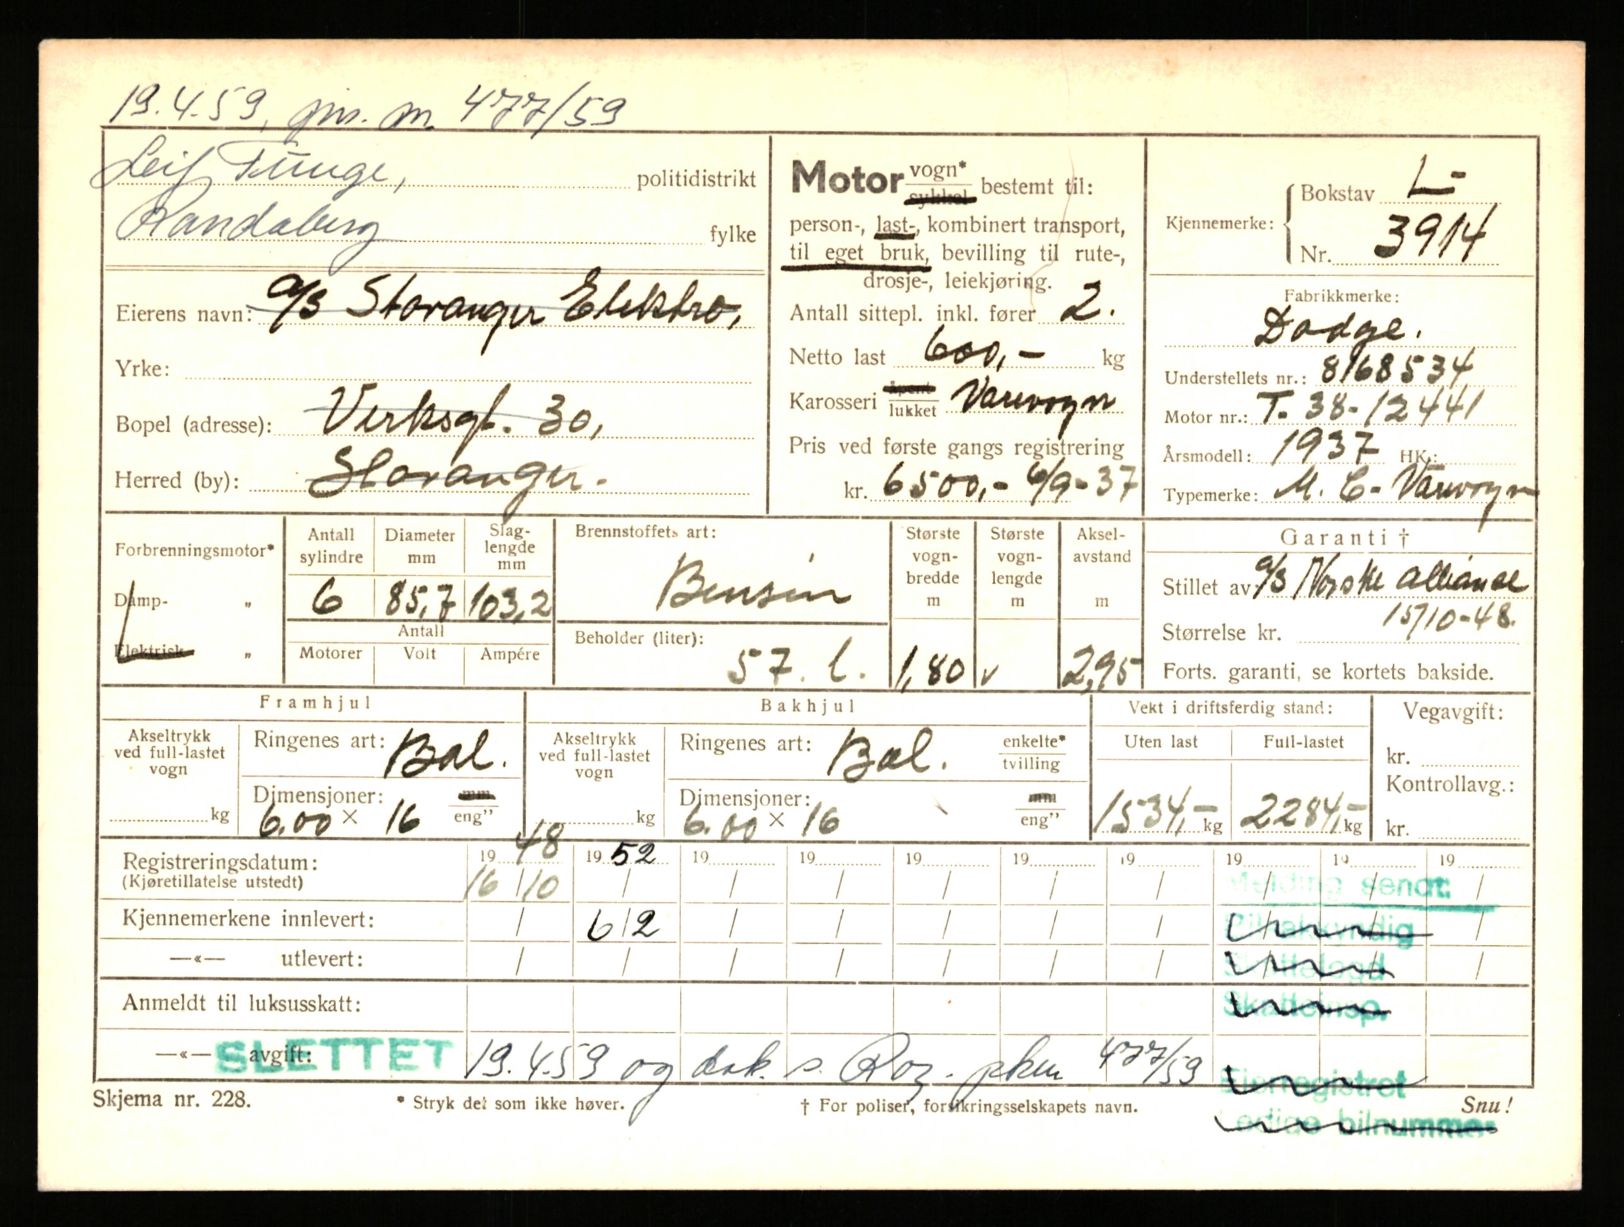 19.4.59, jnr. nr. 477/59
Leif Tunge, politidistrikt
Randaberg fylke
Eierens navn: A/S Stavanger Elektro,
Yrke:
Bopel (adresse): Verksgt. 30,
Herred (by): Stavanger.
Motor vogn* sykkel bestemt til:
person-, last-, kombinert transport,
til eget bruk, bevilling til rute-,
drosje-, leiekjøring.
Antall sittepl. inkl. fører 2.
Netto last 600,- kg
Karosseri åpent lukket Varevogn
Pris ved første gangs registrering
kr. 6500,- 6/9-37
Kjennemerke: Bokstav L-
Nr. 3914
Fabrikkmerke:
Dodge.
Understellets nr.: 8168534
Motor nr.: T. 38-12441
Årsmodell: 1937 HK.:
Typemerke: M. C- Varevogn
Forbrenningsmotor*
Damp- „
Elektrisk „
Antall sylindre 6
Diameter mm 85,7
Slag-lengde mm 103,2
Antall
Motorer Volt Ampére
Brennstoffets art:
Bensin
Beholder (liter):
57. l.
Største vogn-bredde m 1,80
Største vogn-lengde m
Aksel-avstand m 2,95
Garanti †
Stillet av: A/S Norske Alliance
15/10-48.
Størrelse kr.
Forts. garanti, se kortets bakside.
Framhjul
Akseltrykk ved full-lastet vogn
kg
Ringenes art: Bal.
Dimensjoner: mm
6.00 × 16 eng”
Bakhjul
Akseltrykk ved full-lastet vogn
kg
Ringenes art: Bal. enkelte* tvilling
Dimensjoner: mm
6.00 × 16 eng”
Vekt i driftsferdig stand:
Uten last Full-lastet
1534,- kg 2284,- kg
Vegavgift:
kr.
Kontrollavg.:
kr.
Registreringsdatum: 19 48 19 52 19 19 19 19 19 19 19 19
(Kjøretillatelse utstedt) 16/10 / / / / / / / / /
Melding sendt:
Kjennemerkene innlevert: / 6/2 / / / / / / /
—«— utlevert: / / / / / / / / /
Skattefogd
Anmeldt til luksusskatt:
Skatteinsp.
—«— avgift:
SLETTET 19.4.59 og 477/59
Eierregistret
Ledige bilnummer
Skjema nr. 228.
* Stryk det som ikke høver.
† For poliser, forsikringsselskapets navn.
Snu!